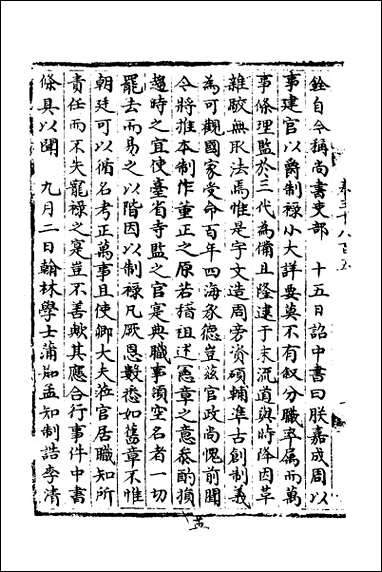 銓自今稱尚書吏部　十五日詔中書曰朕嘉成周以
事建官以爵制祿小大詳要莫不有叙分職率属而萬
事條理監於三代為備且隆逮于末流道與時降因革
雜駮無取法焉惟是宇文造周旁資碩輔準古創制義
為可觀國家受命百年四海承德豈兹官政尚愧前聞
今將推本制作董正之原若稽祖述憲章之意參酌損
趨時之宜使臺省寺監之官寔典職事領空名者一切
罷去而易之以階因以制祿凡厥恩數悉如舊章不惟
朝廷可以循名考正萬事且使卿大夫涖官居職知所
責任而不失寵祿之寔豈不善歟其應合行事件中書
條具以聞　九月二日翰林學士蒲孟知制誥李清
卷三千八百五